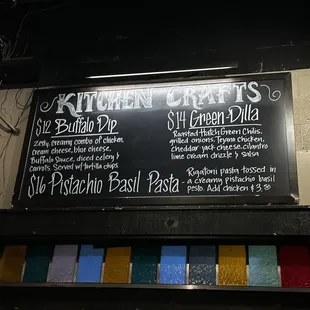 KITCHEN CRAFTS
$12 Buffalo Dip
zesty, creamy combo of chicken,
cream cheese, blue cheese,
Buffalo Sauce, diced celery &
carrots. Served w/ tortilla chips
$14 Green-Dilla
Roasted Hatch Green Chilis,
grilled onions, chicken,
cheddar jack cheese, cilantro
lime cream drizzle & salsa
$16 Pistachio Basil Pasta
Rigatoni pasta tossed in
a creamy pistachio basil
pesto. Add chicken $3.50